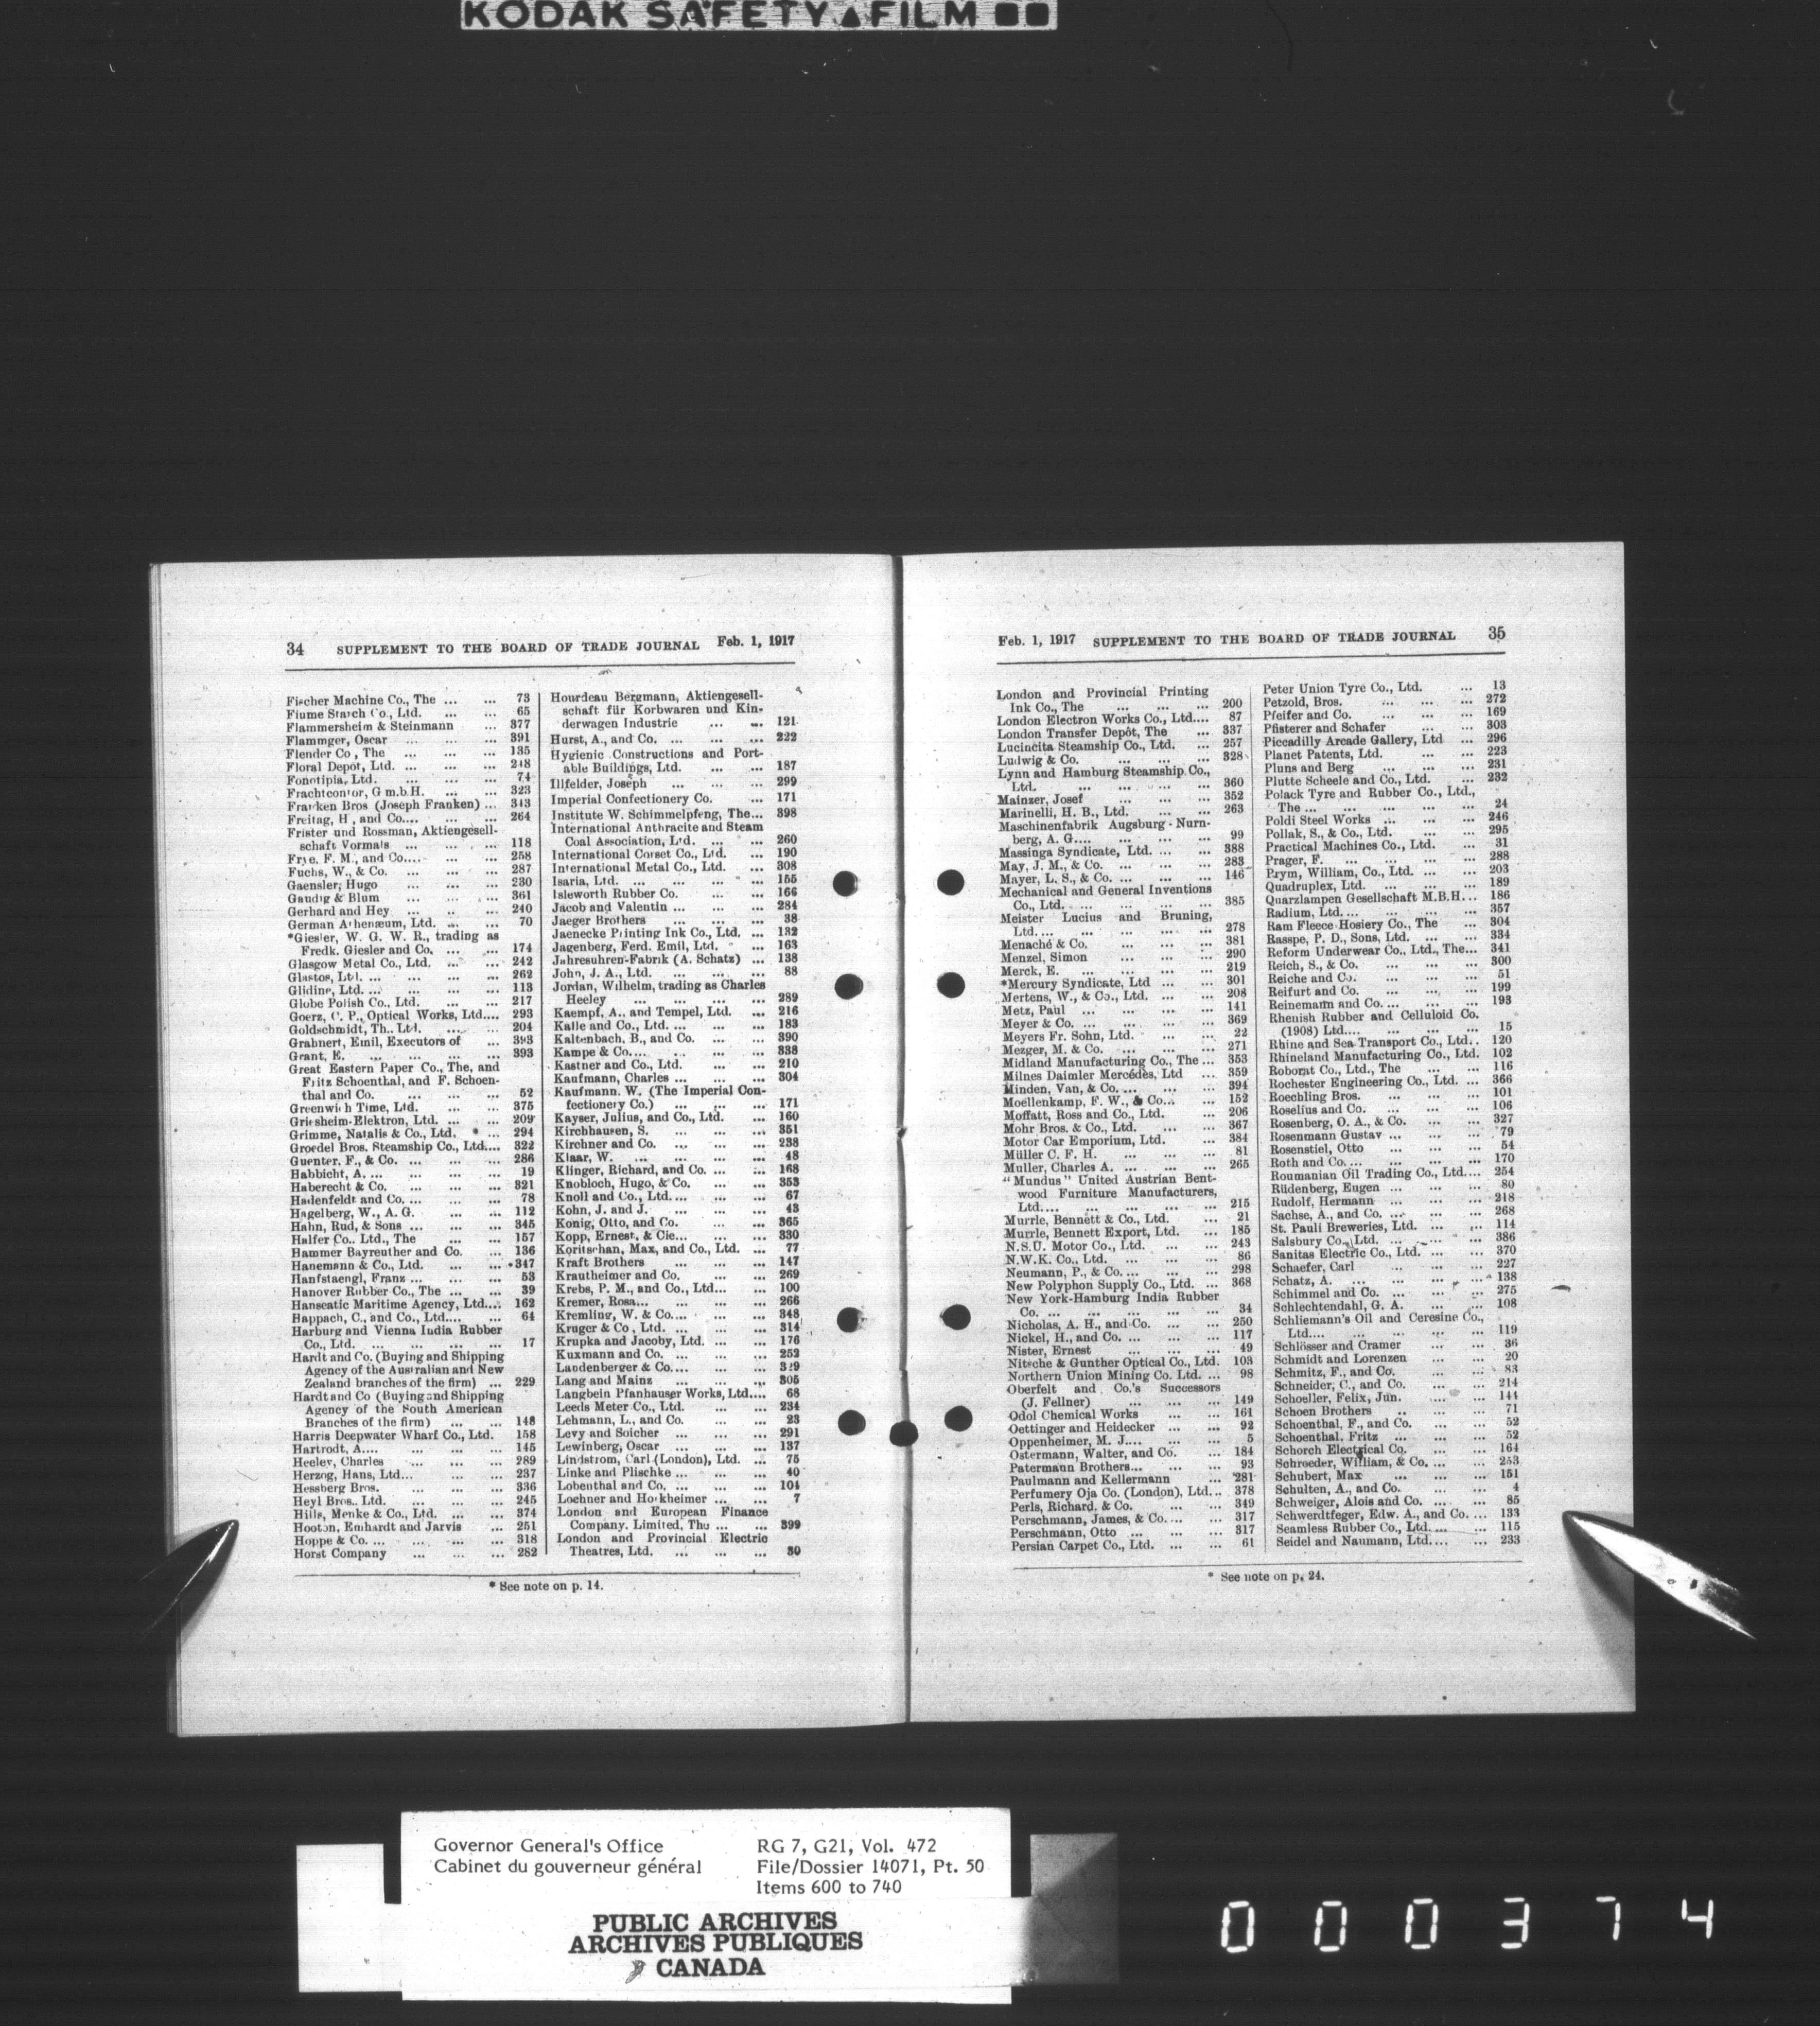 KODAK SAFETY FILM
34 SUPPLEMENT TO THE BOARD OF TRADE JOURNAL Feb. 1, 1917
Fischer Machine Co., The ... ... 73
Fiume Starch Co., Ltd. ... ... 65
Flammersheim & Steinmann ... 377
Flammger, Oscar ... ... ... 391
Flender Co, The ... ... ... 135
Floral Depôt, Ltd. ... ... ... 248
Fonotipia, Ltd. ... ... ... 74
Frachtcontor, G.m.b.H. ... ... 323
Francken Bros (Joseph Franken) ... 343
Freitag, H, and Co.... ... ... 264
Frister und Rossman, Aktiengesell-
schaft Vormals ... ... ... 118
Frye, F. M., and Co.... ... ... 258
Fuchs, W., & Co. ... ... ... 287
Gaensler, Hugo ... ... ... 230
Gaudig & Blum ... ... ... 361
Gerhard and Hey ... ... ... 240
German Athenæum, Ltd. ... ... 70
*Giesler, W. G. W. R., trading as
Fredk. Giesler and Co. ... ... 174
Glasgow Metal Co., Ltd. ... ... 242
Glastos, Ltd. ... ... ... ... 262
Glidine, Ltd. ... ... ... ... 113
Globe Polish Co., Ltd. ... ... 217
Goerz, C. P., Optical Works, Ltd.... 293
Goldschmidt, Th., Ltd. ... ... 204
Grahnert, Emil, Executors of ... 393
Grant, E. ... ... ... ... 393
Great Eastern Paper Co., The, and
Fritz Schoenthal, and F. Schoen-
thal and Co. ... ... ... 52
Greenwich Time, Ltd. ... ... 375
Griesheim-Elektron, Ltd. ... ... 209
Grimme, Natalis & Co., Ltd. ... 294
Groedel Bros. Steamship Co., Ltd.... 322
Guenter, F., & Co. ... ... ... 286
Habbicht, A. ... ... ... ... 19
Haberecht & Co. ... ... ... 321
Hadenfeldt and Co. ... ... ... 78
Hagelberg, W., A. G. ... ... 112
Hahn, Rud, & Sons ... ... ... 345
Halfer Co., Ltd., The ... ... 157
Hammer Bayreuther and Co. ... 136
Hanemann & Co., Ltd. ... ... 347
Hanfstaengl, Franz ... ... ... 53
Hanover Rubber Co., The ... ... 39
Hanseatic Maritime Agency, Ltd.... 162
Happach, C., and Co., Ltd.... ... 64
Harburg and Vienna India Rubber
Co., Ltd. ... ... ... ... 17
Hardt and Co. (Buying and Shipping
Agency of the Australian and New
Zealand branches of the firm) ... 229
Hardt and Co (Buying and Shipping
Agency of the South American
Branches of the firm) ... ... 148
Harris Deepwater Wharf Co., Ltd. 158
Hartrodt, A.... ... ... ... 145
Heeley, Charles ... ... ... 289
Herzog, Hans, Ltd... ... ... 237
Hessberg Bros. ... ... ... 336
Heyl Bros., Ltd. ... ... ... 245
Hills, Menke & Co., Ltd. ... ... 374
Hooton, Emhardt and Jarvis ... 251
Hoppe & Co. ... ... ... ... 318
Horst Company ... ... ... 282
Hourdeau Bergmann, Aktiengesell-
schaft für Korbwaren und Kin-
derwagen Industrie ... ... 121
Hurst, A., and Co. ... ... ... 222
Hygienic Constructions and Port-
able Buildings, Ltd. ... ... 187
Illfelder, Joseph ... ... ... 299
Imperial Confectionery Co. ... 171
Institute W. Schimmelpfeng, The... 398
International Anthracite and Steam
Coal Association, Ltd. ... ... 260
International Corset Co., Ltd. ... 190
International Metal Co., Ltd. ... 308
Isaria, Ltd. ... ... ... ... 155
Isleworth Rubber Co. ... ... 166
Jacob and Valentin ... ... ... 284
Jaeger Brothers ... ... ... 38
Jaenecke Printing Ink Co., Ltd. ... 132
Jagenberg, Ferd. Emil, Ltd. ... 163
Jahresuhren-Fabrik (A. Schatz) ... 138
John, J. A., Ltd. ... ... ... 88
Jordan, Wilhelm, trading as Charles
Heeley ... ... ... ... 289
Kaempf, A., and Tempel, Ltd. ... 216
Kalle and Co., Ltd. ... ... ... 183
Kaltenbach, B., and Co. ... ... 390
Kampe & Co.... ... ... ... 338
Kastner and Co., Ltd. ... ... 210
Kaufmann, Charles ... ... ... 304
Kaufmann, W. (The Imperial Con-
fectionery Co.) ... ... ... 171
Kayser, Julius, and Co., Ltd. ... 160
Kirchhausen, S. ... ... ... 351
Kirchner and Co. ... ... ... 238
Klaar, W. ... ... ... ... 48
Klinger, Richard, and Co. ... ... 168
Knobloch, Hugo, & Co. ... ... 353
Knoll and Co., Ltd. ... ... ... 67
Kohn, J. and J. ... ... ... 43
Konig, Otto, and Co. ... ... 365
Kopp, Ernest, & Cie... ... ... 330
Koritschan, Max, and Co., Ltd. ... 77
Kraft Brothers ... ... ... 147
Krautheimer and Co. ... ... 269
Krebs, P. M., and Co., Ltd... ... 100
Kremer, Rosa... ... ... ... 266
Kremling, W. & Co.... ... ... 348
Kruger & Co, Ltd. ... ... ... 314
Krupka and Jacoby, Ltd. ... ... 176
Kuxmann and Co. ... ... ... 252
Landenberger & Co.... ... ... 329
Lang and Mainz ... ... ... 305
Langbein Pfanhauser Works, Ltd.... 68
Leeds Meter Co., Ltd. ... ... 234
Lehmann, L., and Co. ... ... 23
Levy and Soicher ... ... ... 291
Lewinberg, Oscar ... ... ... 137
Lindstrom, Carl (London), Ltd. ... 75
Linke and Plischke ... ... ... 40
Lobenthal and Co. ... ... ... 104
Lochner and Horkheimer ... ... 7
London and European Finance
Company, Limited, The ... ... 399
London and Provincial Electric
Theatres, Ltd. ... ... ... 30
* See note on p. 14.
Feb. 1, 1917 SUPPLEMENT TO THE BOARD OF TRADE JOURNAL 35
London and Provincial Printing
Ink Co., The ... ... ... 200
London Electron Works Co., Ltd.... 87
London Transfer Depôt, The ... 337
Lucincita Steamship Co., Ltd. ... 257
Ludwig & Co. ... ... ... ... 328
Lynn and Hamburg Steamship Co.,
Ltd. ... ... ... ... 360
Mainzer, Josef ... ... ... 352
Marinelli, H. B., Ltd. ... ... 263
Maschinenfabrik Augsburg-Nurn-
berg, A. G.... ... ... ... 99
Massinga Syndicate, Ltd. ... ... 388
May, J. M., & Co. ... ... ... 283
Mayer, L. S., & Co. ... ... ... 146
Mechanical and General Inventions
Co., Ltd. ... ... ... ... 385
Meister Lucius and Bruning,
Ltd.... ... ... ... ... 278
Menaché & Co. ... ... ... 381
Menzel, Simon ... ... ... 290
Merck, E. ... ... ... ... 219
*Mercury Syndicate, Ltd ... ... 301
Mertens, W., & Co., Ltd. ... ... 208
Metz, Paul ... ... ... ... 141
Meyer & Co. ... ... ... ... 369
Meyers Fr. Sohn, Ltd. ... ... 22
Mezger, M. & Co. ... ... ... 271
Midland Manufacturing Co., The ... 353
Milnes Daimler Mercédes, Ltd ... 359
Minden, Van, & Co. ... ... ... 394
Moellenkamp, F. W., & Co... ... 152
Moffatt, Ross and Co., Ltd. ... 206
Mohr Bros. & Co., Ltd. ... ... 367
Motor Car Emporium, Ltd. ... 384
Müller C. F. H. ... ... ... 81
Muller, Charles A. ... ... ... 265
"Mundus" United Austrian Bent-
wood Furniture Manufacturers,
Ltd.... ... ... ... ... 215
Murrle, Bennett & Co., Ltd. ... 21
Murrle, Bennett Export, Ltd. ... 185
N.S.U. Motor Co., Ltd. ... ... 243
N.W.K. Co., Ltd. ... ... ... 86
Neumann, P., & Co. ... ... ... 298
New Polyphon Supply Co., Ltd. ... 368
New York-Hamburg India Rubber
Co. ... ... ... ... ... 34
Nicholas, A. H., and Co. ... ... 250
Nickel, H., and Co. ... ... ... 117
Nister, Ernest ... ... ... 49
Nitsche & Gunther Optical Co., Ltd. 103
Northern Union Mining Co. Ltd. ... 98
Oberfelt and Co.'s Successors
(J. Fellner) ... ... ... 149
Odol Chemical Works ... ... 161
Oettinger and Heidecker ... ... 92
Oppenheimer, M. J.... ... ... 5
Ostermann, Walter, and Co. ... 184
Patermann Brothers... ... ... 93
Paulmann and Kellermann ... 281
Perfumery Oja Co. (London), Ltd... 378
Perls, Richard, & Co. ... ... 349
Perschmann, James, & Co. ... ... 317
Perschmann, Otto ... ... ... 317
Persian Carpet Co., Ltd. ... ... 61
Peter Union Tyre Co., Ltd. ... 13
Petzold, Bros. ... ... ... 272
Pfeifer and Co. ... ... ... 169
Pfisterer and Schafer ... ... 303
Piccadilly Arcade Gallery, Ltd ... 296
Planet Patents, Ltd. ... ... 223
Pluns and Berg ... ... ... 231
Plutte Scheele and Co., Ltd. ... 232
Polack Tyre and Rubber Co., Ltd.,
The ... ... ... ... ... 24
Poldi Steel Works ... ... ... 246
Pollak, S., & Co., Ltd. ... ... 295
Practical Machines Co., Ltd. ... 31
Prager, F. ... ... ... ... 288
Prym, William, Co., Ltd. ... ... 203
Quadruplex, Ltd. ... ... ... 189
Quarzlampen Gesellschaft M.B.H... 186
Radium, Ltd.... ... ... ... 357
Ram Fleece Hosiery Co., The ... 304
Rasspe, P. D., Sons, Ltd. ... ... 334
Reform Underwear Co., Ltd., The... 341
Reich, S., & Co. ... ... ... 300
Reiche and Co. ... ... ... 51
Reifurt and Co. ... ... ... 199
Reinemann and Co. ... ... ... 193
Rhenish Rubber and Celluloid Co.
(1908) Ltd.... ... ... ... 15
Rhine and Sea Transport Co., Ltd.. 120
Rhineland Manufacturing Co., Ltd. 102
Roborat Co., Ltd., The ... ... 116
Rochester Engineering Co., Ltd. ... 366
Roechling Bros. ... ... ... 101
Roselius and Co. ... ... ... 106
Rosenberg, O. A., & Co. ... ... 327
Rosenmann Gustav ... ... ... 79
Rosenstiel, Otto ... ... ... 54
Roth and Co. ... ... ... ... 170
Roumanian Oil Trading Co., Ltd.... 254
Rüdenberg, Eugen ... ... ... 80
Rudolf, Hermann ... ... ... 218
Sachse, A., and Co. ... ... ... 268
St. Pauli Breweries, Ltd. ... ... 114
Salsbury Co., Ltd. ... ... ... 386
Sanitas Electric Co., Ltd. ... ... 370
Schaefer, Carl ... ... ... 227
Schatz, A. ... ... ... ... 138
Schimmel and Co. ... ... ... 275
Schlechtendahl, G. A. ... ... 108
Schliemann's Oil and Ceresine Co.,
Ltd.... ... ... ... ... 119
Schlösser and Cramer ... ... 36
Schmidt and Lorenzen ... ... 20
Schmitz, F., and Co. ... ... 83
Schneider, C., and Co. ... ... 214
Schoeller, Felix, Jun. ... ... 144
Schoen Brothers ... ... ... 71
Schoenthal, F., and Co. ... ... 52
Schoenthal, Fritz ... ... ... 52
Schorch Electrical Co. ... ... 164
Schroeder, William, & Co. ... ... 253
Schubert, Max ... ... ... 151
Schulten, A., and Co. ... ... 4
Schweiger, Alois and Co. ... ... 85
Schwerdtfeger, Edw. A., and Co. ... 133
Seamless Rubber Co., Ltd. ... ... 115
Seidel and Naumann, Ltd.... ... 233
* See note on p. 24.
Governor General's Office RG 7, G21, Vol. 472
Cabinet du gouverneur général File/Dossier 14071, Pt. 50
Items 600 to 740
PUBLIC ARCHIVES
ARCHIVES PUBLIQUES
CANADA
000374